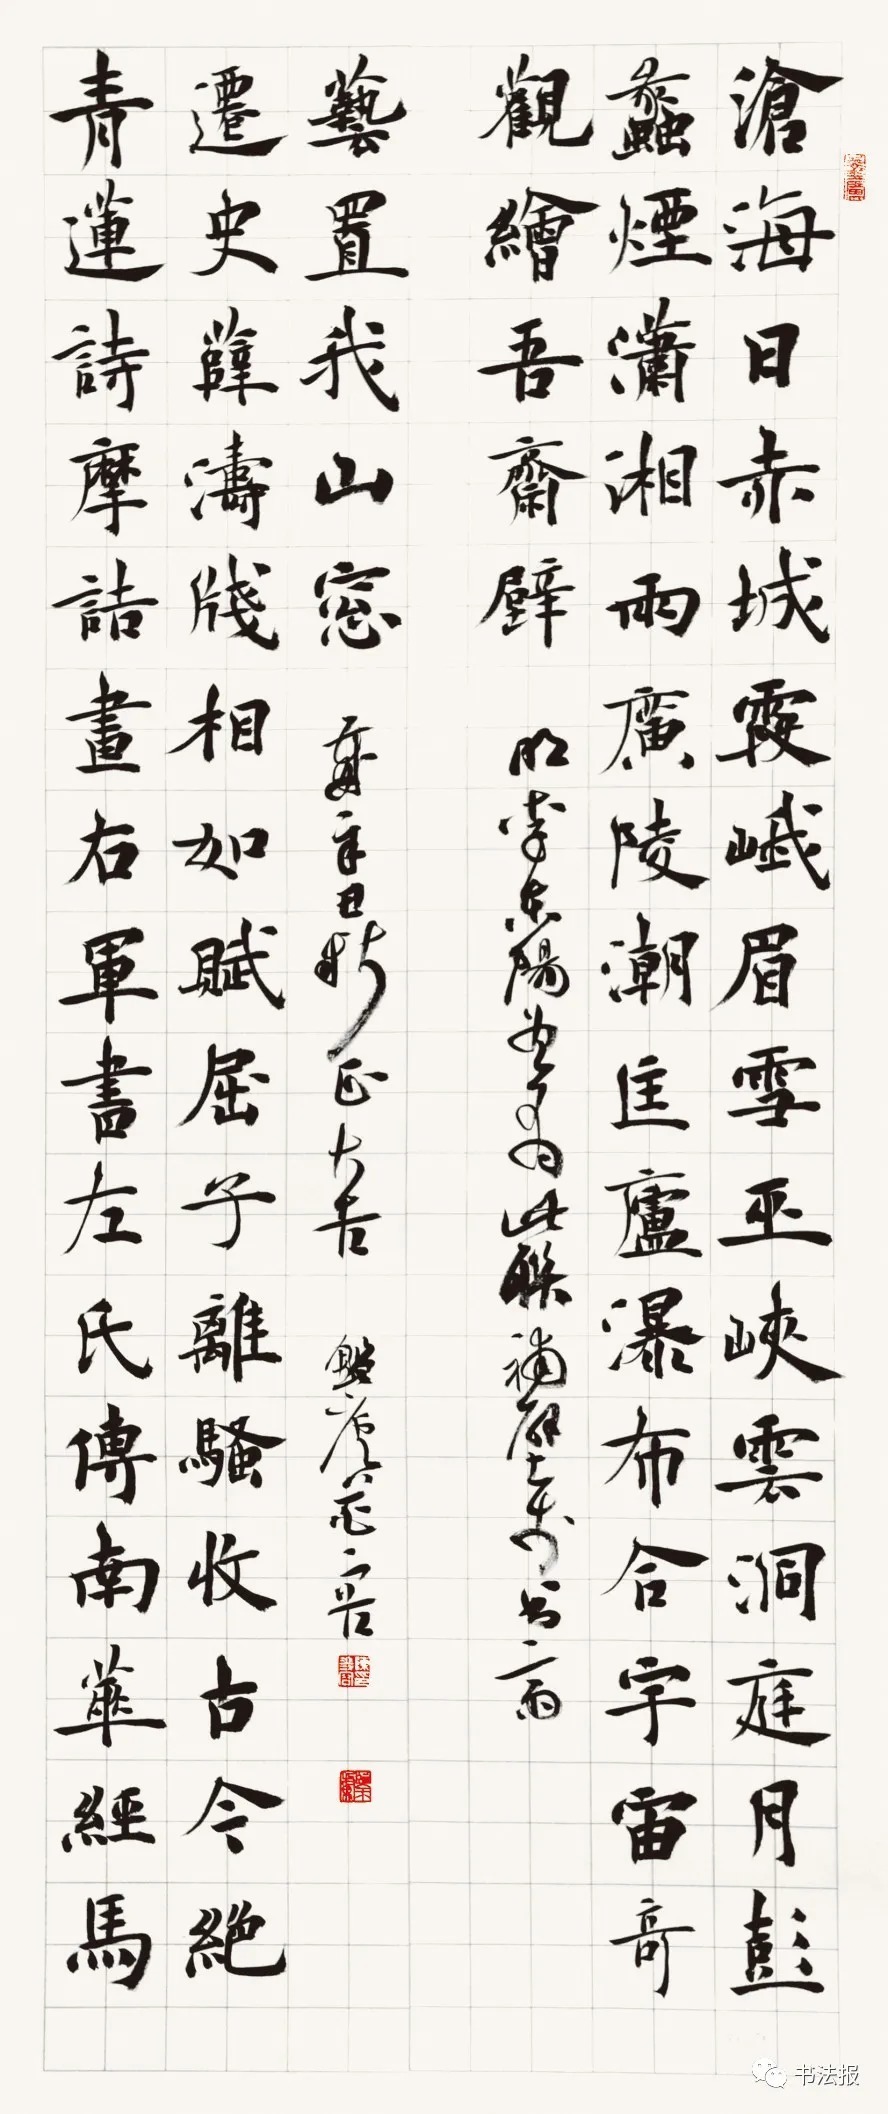 滄海日赤城霞峨眉雪巫峽雲洞庭月彭
蠡煙瀟湘雨廣陵潮匡廬瀑布合宇宙奇
觀繪吾齋壁
明李東陽 此聯補壁
青蓮詩摩詰畫右軍書左氏傳南華經馬
遷史薛濤牋相如賦屈子離騷收古今絕
藝置我山窓
歲辛丑秋
书法报